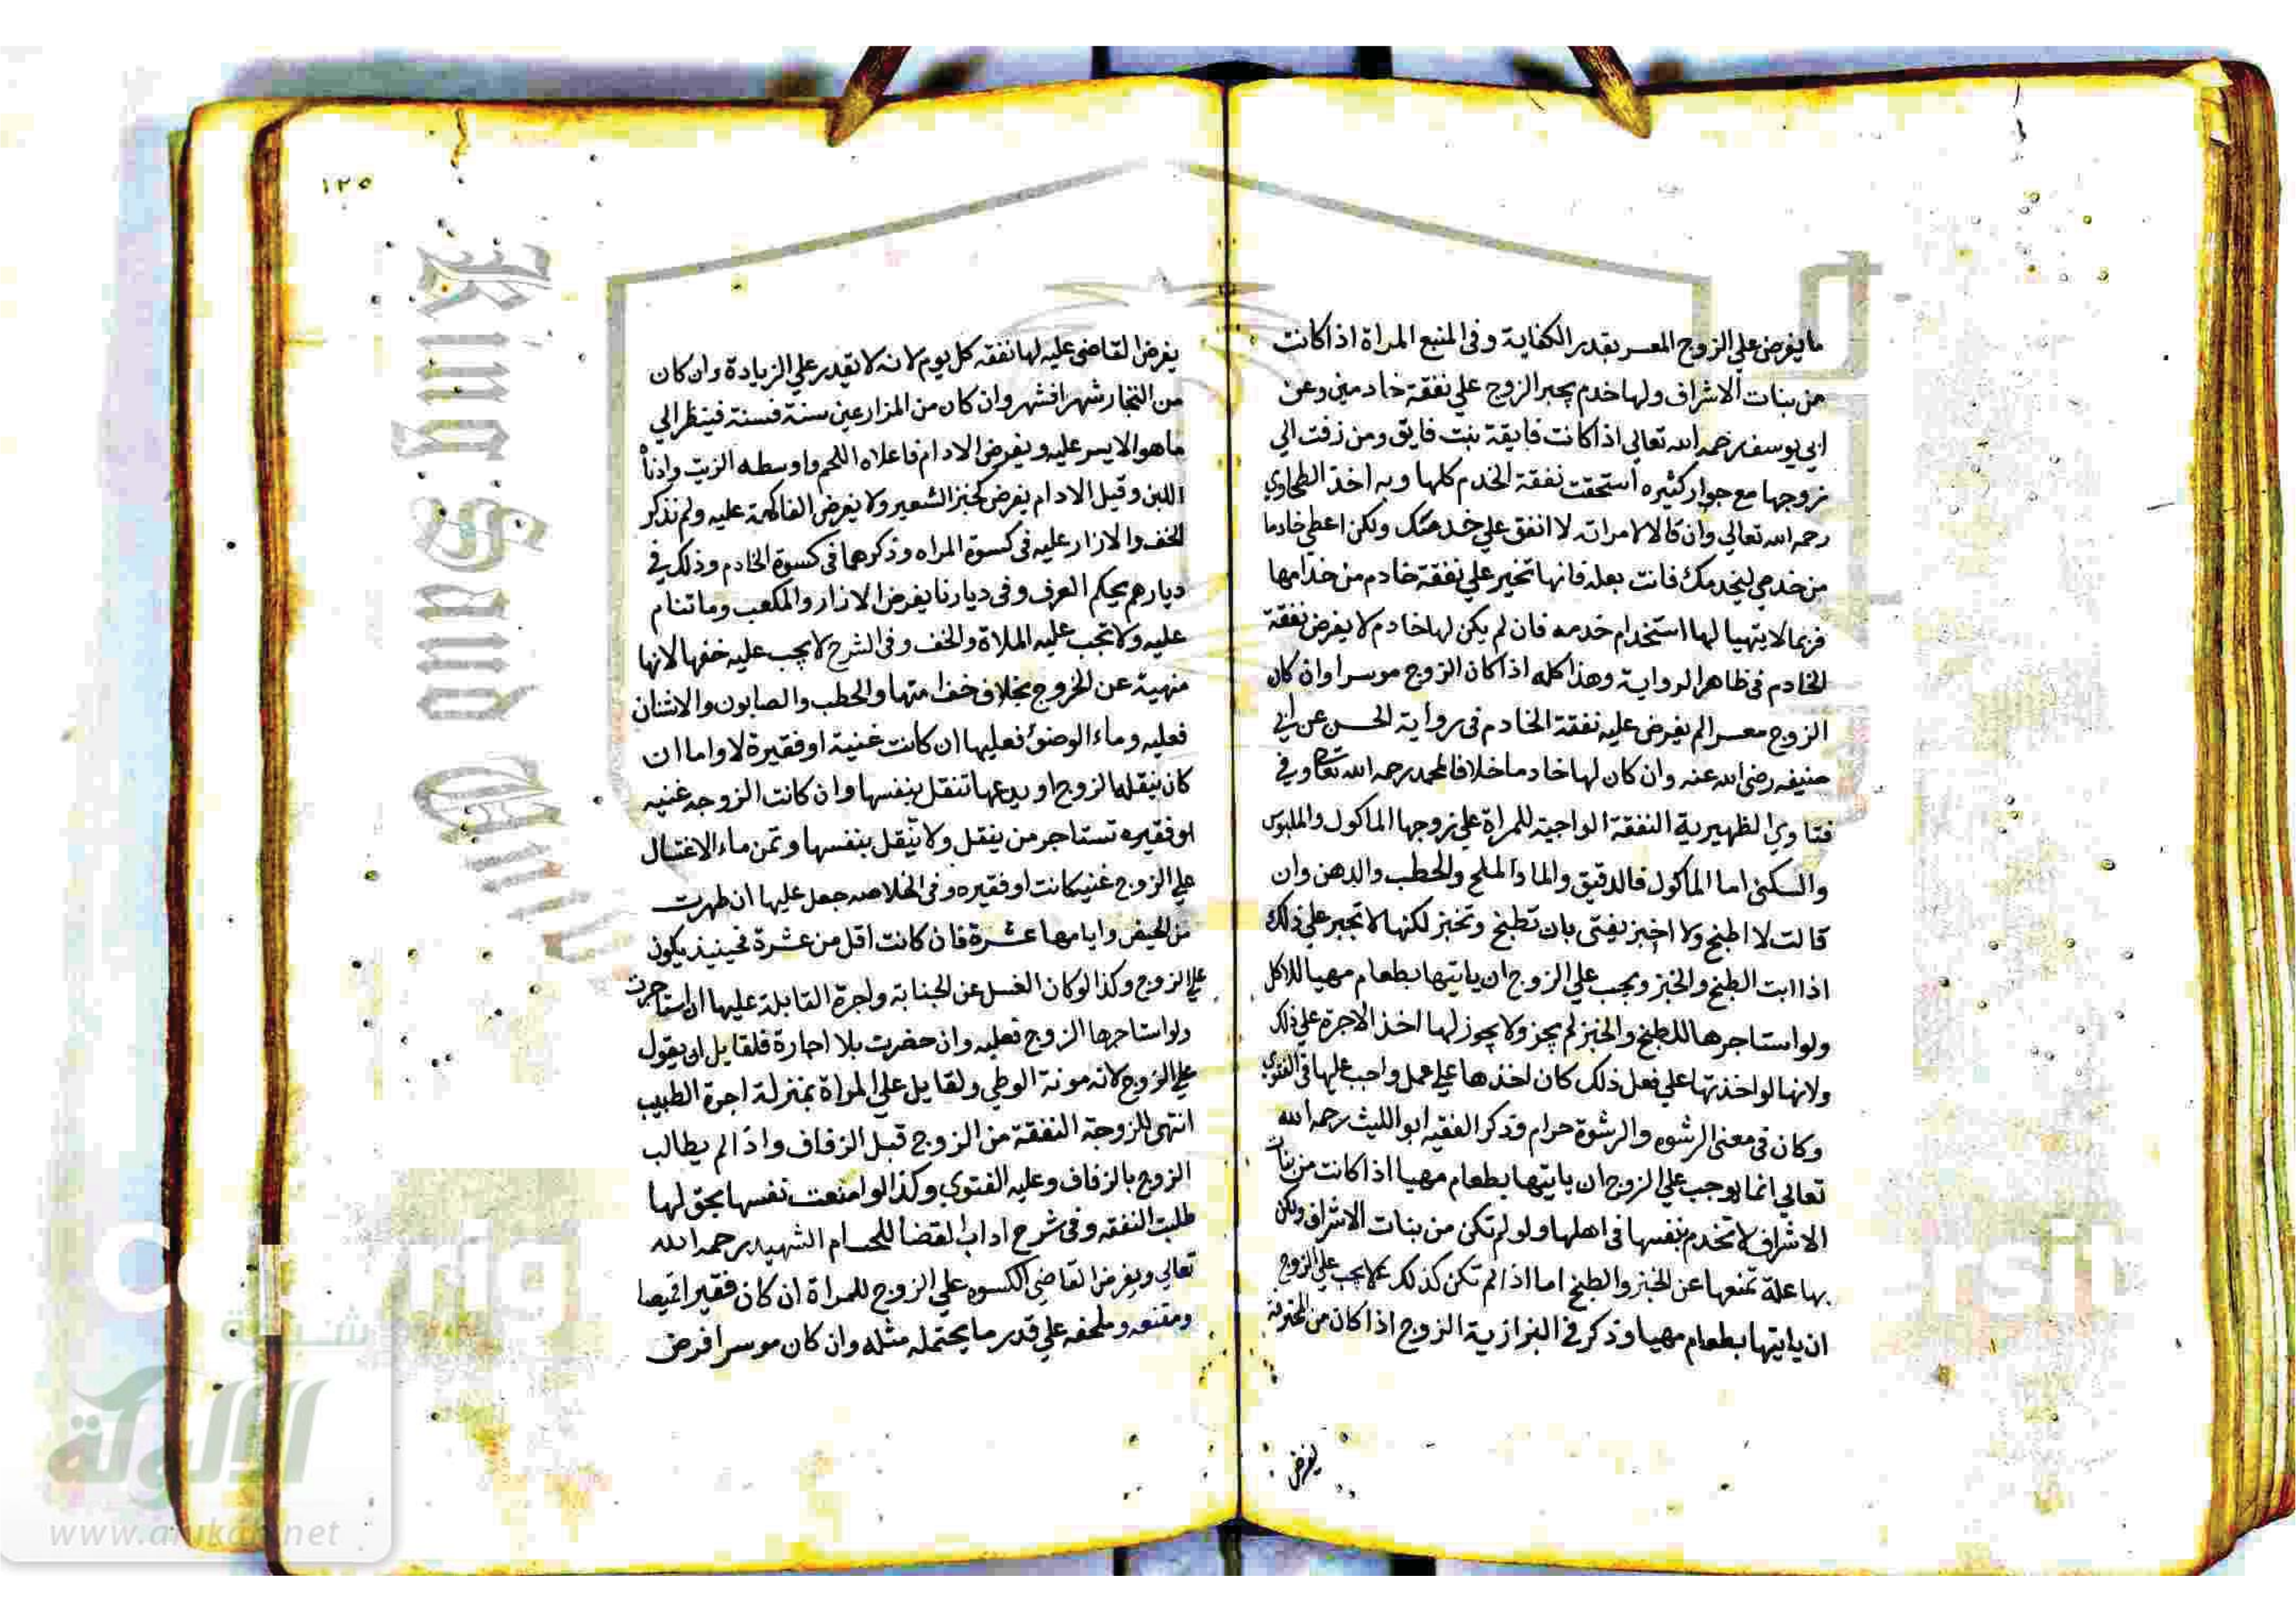 ما يفرض علي الزوج المعسر بقدر الكفاية وفي المنبع المراة اذا كانت
من بنات الاشراف ولها خدم يجبر الزوج علي نفقة خادمين وعن
ابي يوسف رحمه الله تعالي اذا كانت فايقة بنت فايق ومن زفت الي
زوجها مع جوار كثيره استحقت نفقة الخدم كلها وبه اخذ الطحاوي
رحمه الله تعالي وان قال لامراته لا انفق علي خدمتك ولكن اعطي خادما
من خدمي ليخدمك فابت بعله فانها تخير علي نفقة خادم من خدامها
فربما لا يتهيا لها استخدام خدمه فان لم يكن لها خادم لا يفرض نفقة
الخادم في ظاهر الرواية وهذا كله اذا كان الزوج موسرا وان كان
الزوج معسرا لم يفرض عليه نفقة الخادم في رواية الحسن عن ابي
حنيفه رضي الله عنه وان كان لها خادما خلافا لمحمد رحمه الله تعالي وفي
فتاوي الظهيرية النفقة الواجبة للمراة علي زوجها الماكول والملبوس
والسكني اما الماكول فالدقيق والما والملح والحطب والدهن وان
قالت لا اطبخ ولا اخبز يفتي بان تطبخ وتخبز لكنها لا تجبر علي ذلك
اذا ابت الطبخ والخبز ويجب علي الزوج ان ياتيها بطعام مهيا للاكل
ولو استاجرها للطبخ والخبز لم يجز ولا يجوز لها اخذ الاجرة علي ذلك
ولانها لو اخذتها علي فعل ذلك كان اخذها علي عمل واجب عليها في الفتوي
وكان في معني الرشوه والرشوة حرام وذكر الفقيه ابو الليث رحمه الله
تعالي انما يوجب علي الزوج ان ياتيها بطعام مهيا اذا كانت من بنات
الاشراف لا تخدم بنفسها في اهلها ولو لم تكن من بنات الاشراف ولكن
بها علة تمنعها عن الخبز والطبخ اما اذا لم تكن كذلك لا يجب علي الزوج
ان ياتيها بطعام مهيا وذكر في البزازية الزوج اذا كان من المحترفة
يفرض
١٢٥
يفرض القاضي عليه لها نفقه كل يوم لانه لا يقدر علي الزيادة وان كان
من التجار شهرا فشهر وان كان من المزارعين سنة فسنة فينظر الي
ما هو الايسر عليه ويفرض الادام فاعلاه اللحم واوسطه الزيت وادناه
اللبن وقيل الادام يفرض كخبز الشعير ولا يفرض الفاكهة عليه ولم نذكر
الخف والازار عليه في كسوة المراه وذكرهما في كسوة الخادم وذلك في
ديارهم بحكم العرف وفي ديارنا يفرض الازار والمكعب وما تنام
عليه ولا تجب عليه الملاة والخف وفي الشرح لا يجب عليه خفها لانها
منهية عن الخروج بخلاف خف امتها والحطب والصابون والاشنان
فعليه وماء الوضوء فعليها ان كانت غنية او فقيرة لا واما ان
كان ينقله الزوج او يدعها تنقل بنفسها وان كانت الزوجه غنيه
او فقيره تستاجر من ينقل ولا تنقل بنفسها وثمن ماء الاغتسال
علي الزوج غنيه كانت او فقيره وفي الخلاصه جعل عليها ان طهرت
من الحيض وايامها عشرة فان كانت اقل من عشرة فحينيذ يكون
علي الزوج وكذا لو كان الغسل عن الجنابة واجرة القابلة عليها ان استاجرت
ولو استاجرها الزوج فعليه وان حضرت بلا اجارة فلقايل ان يقول
علي الزوج لانه مونة الوطي ولقايل علي المراة بمنزلة اجرة الطبيب
انتهي للزوجة النفقة من الزوج قبل الزفاف واذا لم يطالب
الزوج بالزفاف وعليه الفتوي وكذا لو امنعت نفسها بحق لها
طلبت النفقه وفي شرح اداب القضا للحسام الشهيد رحمه الله
تعالي ويفرض القاضي الكسوه علي الزوج للمراة ان كان فقيرا قميصا
ومقنعه وملحفه علي قدر ما يحتمله مثله وان كان موسرا فرض
King Saud
شبكة
الألوكة
www.alukah.net